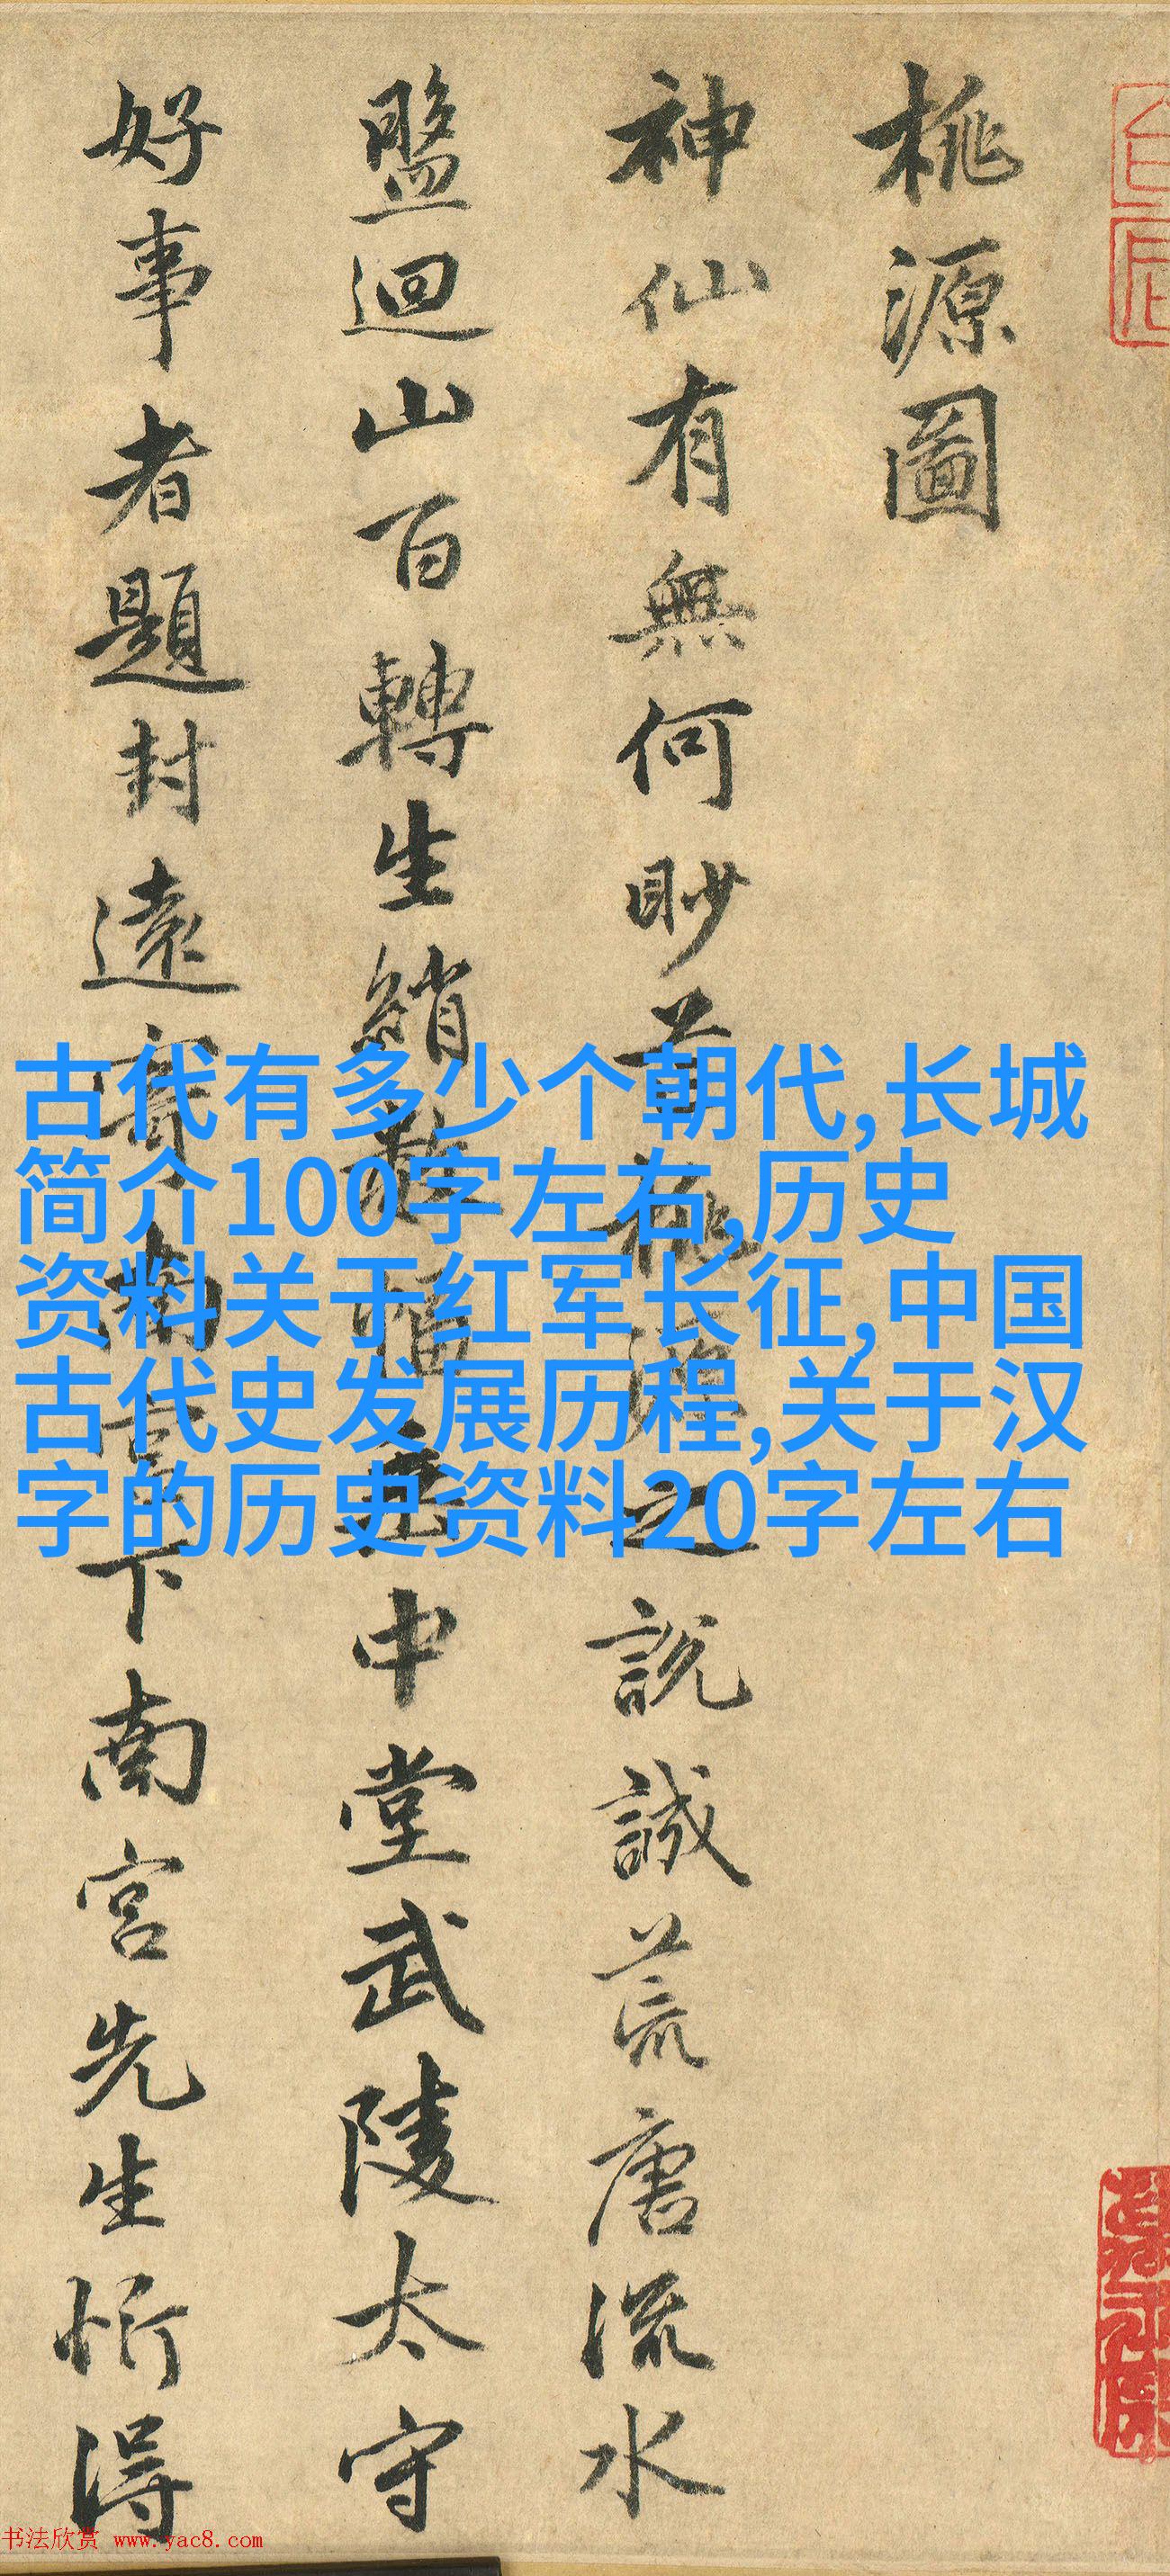 桃源圖
神仙有無何眇芒桃源之說誠荒唐流水
盤迴山百轉生綃數幅垂中堂武陵太守
好事者題封遠寄南宮下南宮先生忻得
古代有多少个朝代,长城
简介100字左右,历史
资料关于红军长征,中国
古代史发展历程,关于汉
字的历史资料20字左右
书法欣赏 www.yac8.com